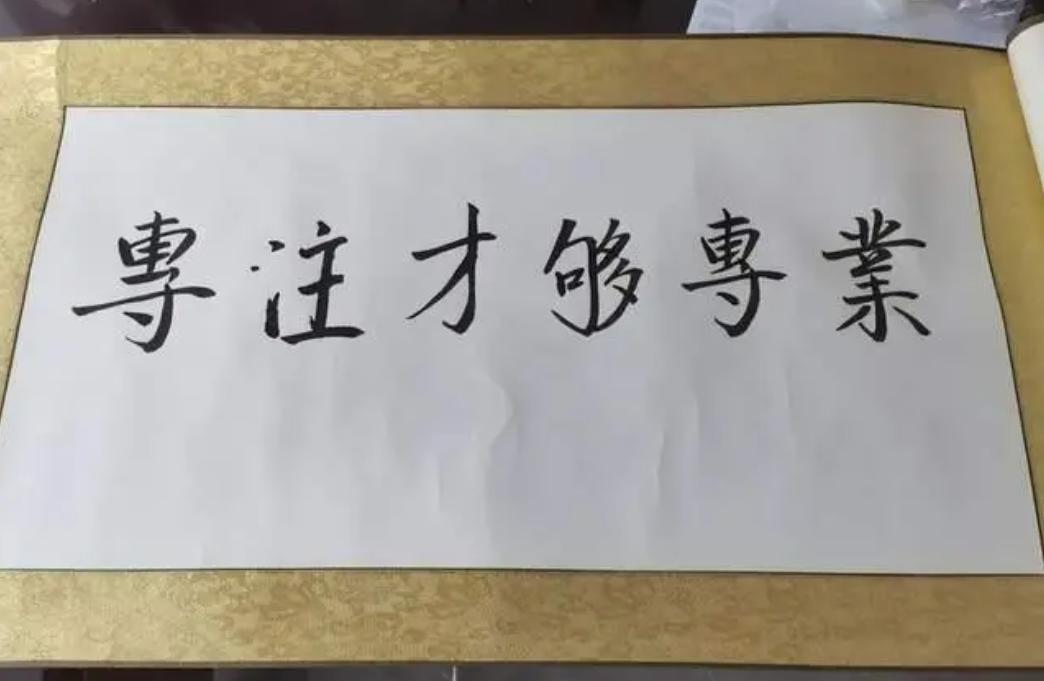 專注才够專業